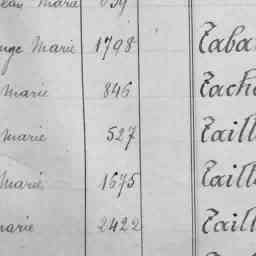 Marie 1798 Taba
Marie 846 Tach
Marie 527 Taill
Marie 1675 Taill
Marie 2422 Taill